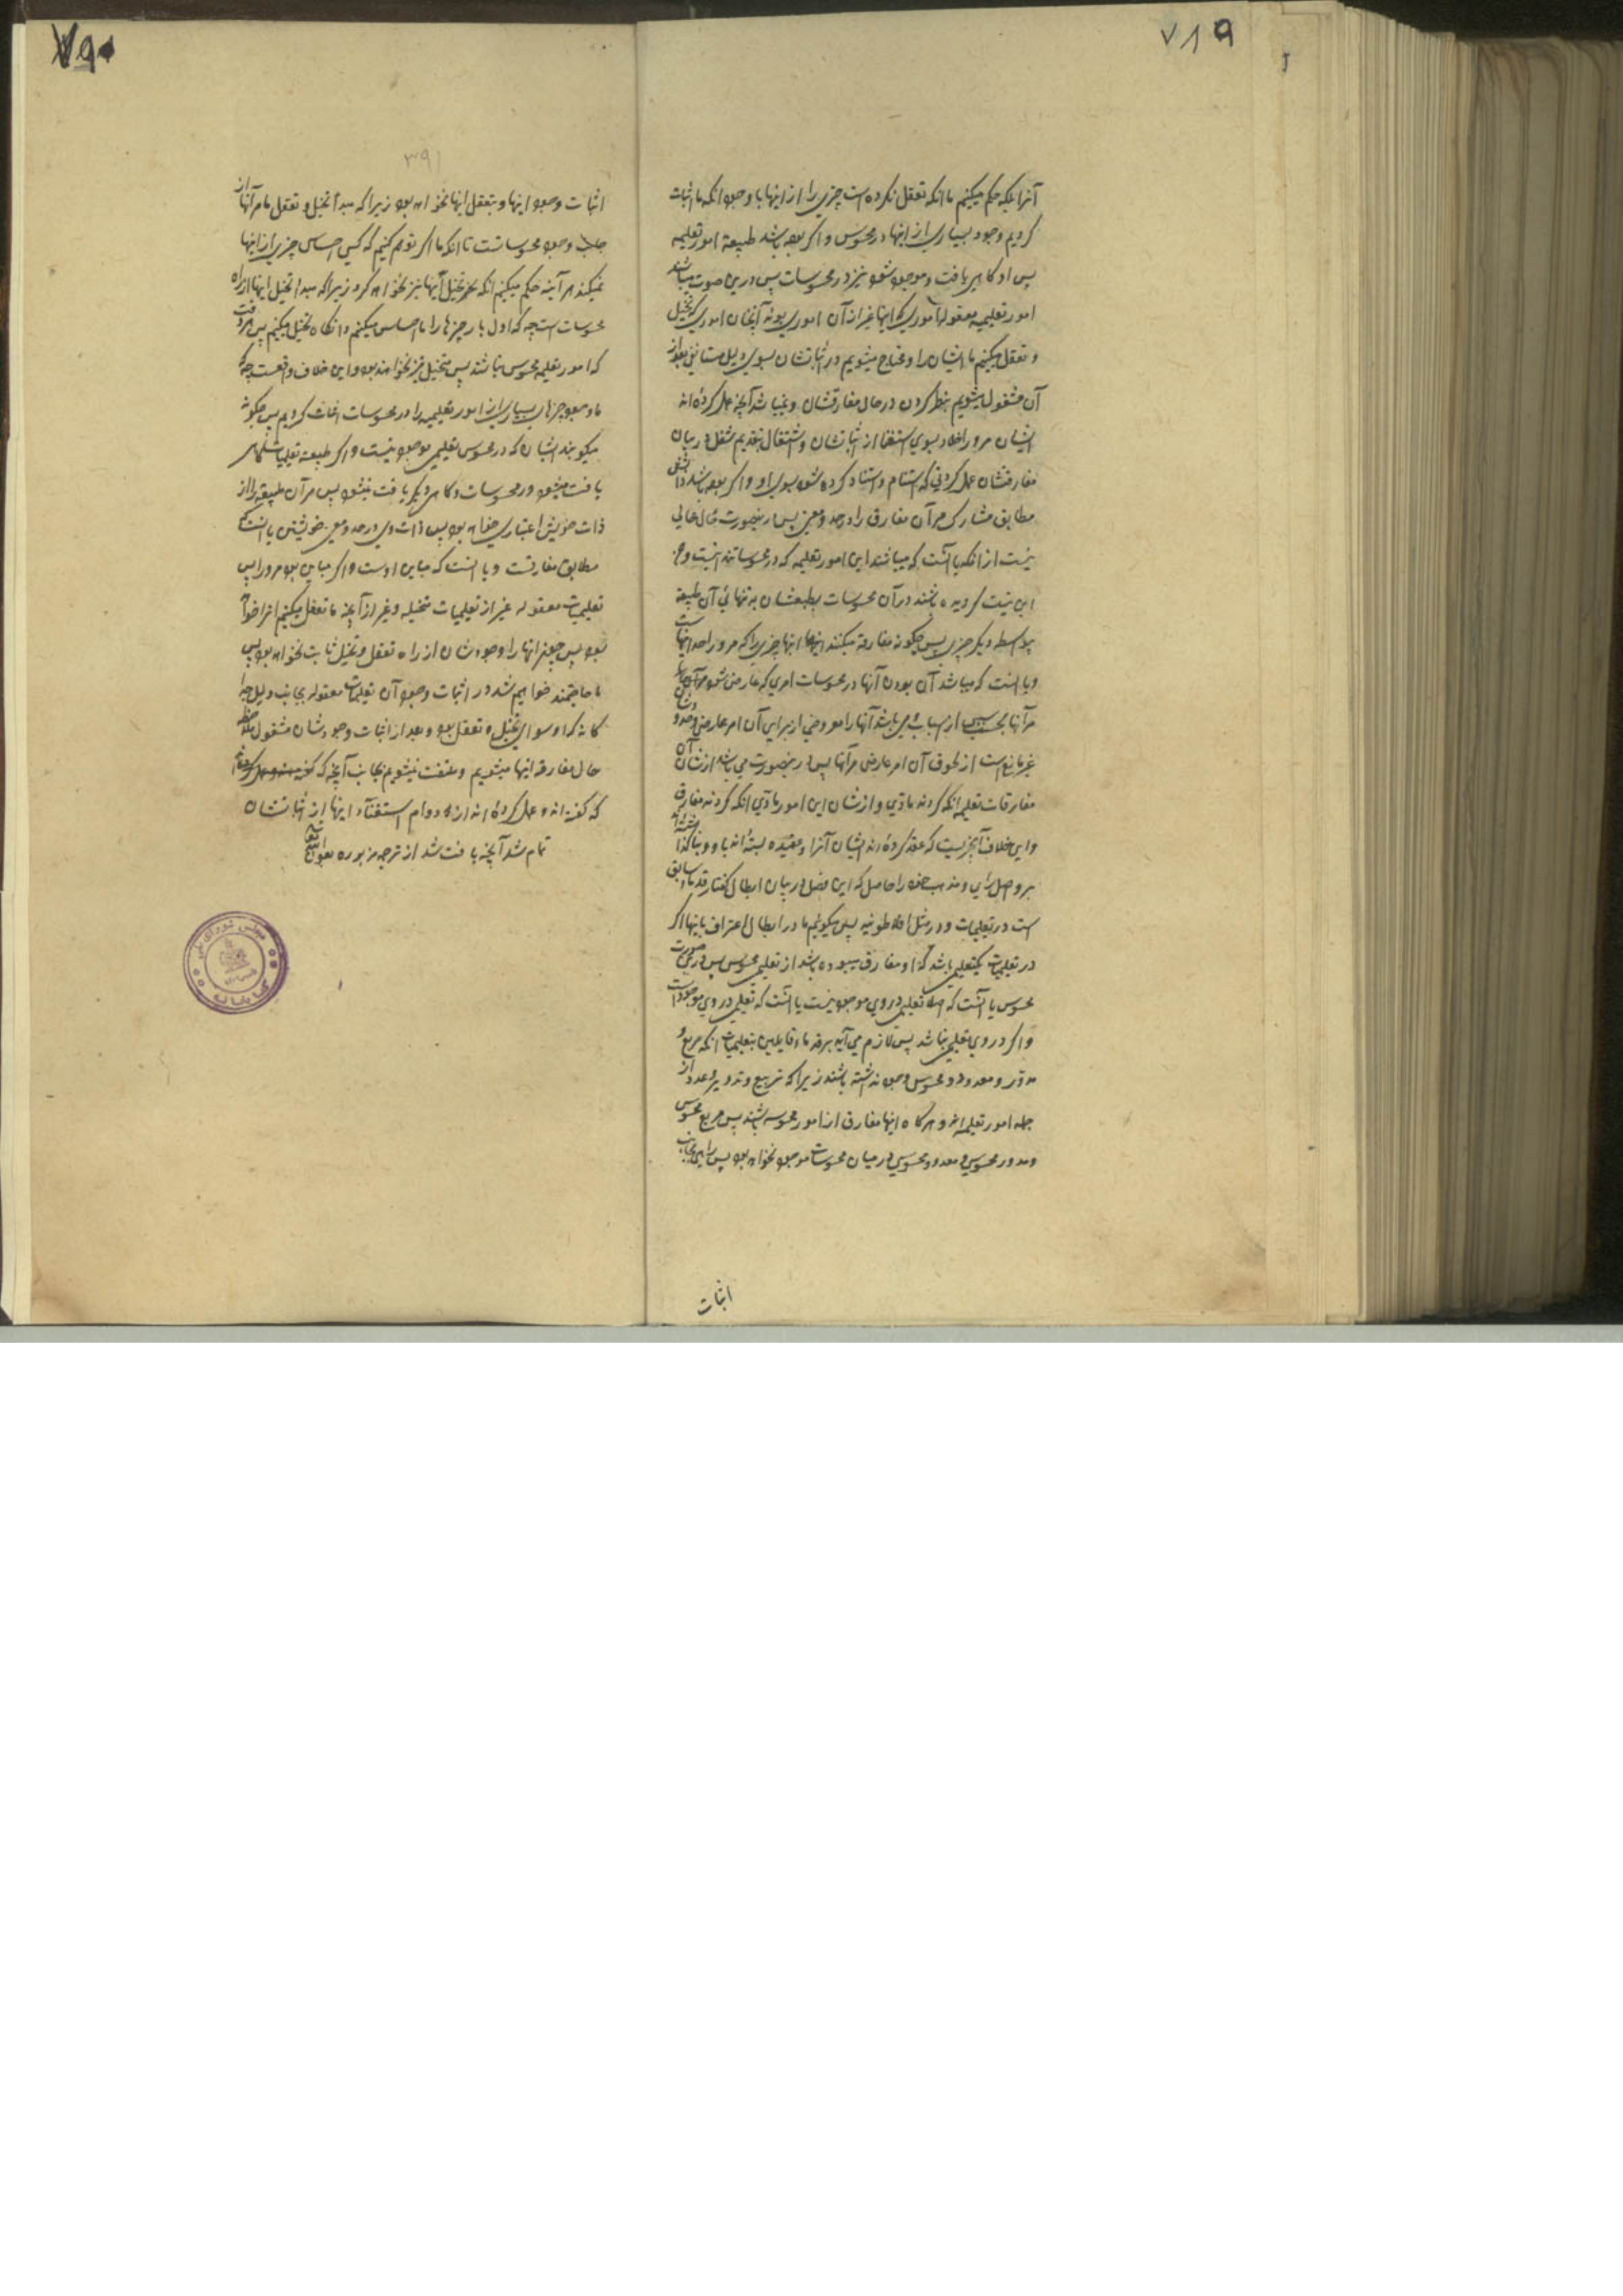 ۷۸۹
آنرا بلکه حکم میکنیم ما انکه تعقل نکرده است چیزی را از اینها با وجود انکه ما اثبات
کردیم وجود بسیاری از اینها در محسوس و اکر بوده باشد طبیعة امور تعلیمیه
پس او کاهی یافت و موجود شود نیز در محسوسات پس درین صورت میباشد
امور تعلیمیه معقوله اموری که اینها غیر از آن اموری بوند آنچنان اموری که تخیل
و تعقل میکنیم ما ایشان را و محتاج میشویم در اثباتشان بسوی دلیل مستانف بعد از
آن مشغول میشویم بنظر کردن در حال مفارقتشان و نمیباشد آنچه عمل کرده اند
ایشان مرور اخلاد بسوی استغنا از اثباتشان و اشتغال بتقدیم شغل در بیان
مفارقتشان عمل کردنی که استنام و استناد کرده شود بسوی او و اکر بوده باشد
مطابق مشارک مر آن مفارق را در حد و معنی پس درینصورت خالی
نیست از انکه یا آنست که میباشند این امور تعلیمیه که در محسوساتند
این نیست کردیده باشند در آن محسوسات بطبعشان به تنهائی آن طبیعة
بواسطه دیکر چیزی پس چکونه مفارقة میکنند اینها چیزی را که مرور احد اینهاست
و یا انست که میباشد آن بودن آنها در محسوسات امری که عارض شود
مر آنها بسببی از اسباب و می باشد آنها را معروضی از برای آن امر عارضی
غیر مانع است از لحوق آن امر عارض مر آنها پس درینصورت می باشد از شان آن
مفارقات تعلیمیه انکه کردند مادّی و از شان این امور مادّی انکه کردند مفارق
و این خلاف آنچیزیست که عقد کرده اند ایشان آنرا و عقیده بسته اند باو و بنا کذاشته اند
بر و اصل رای و مذهب خود را حاصل که این فصل در بیان ابطال کفتار قدماء سابق
است در تعلیمیات و در مثل افلاطونیه پس میکوئیم ما در ابطال اعتراف باینها اکر
در تعلیمیات یک تعلیمی باشد که او مفارق بوده باشد از تعلیمی محسوس پس در صورت
محسوس یا آنست که اصلا تعلیمی در وی موجود نیست یا انست که تعلیمی در وی موجود است
و اکر در وی تعلیمی نباشد پس لازم می آید بر قدماء قایلین بتعلیمیات انکه مربع و
مدوّر و معدود و محسوس وجود نداشته باشند زیرا که تربیع و تدویر و عدد از
جمله امور تعلیمیه اند و هر کاه اینها مفارق از امور محسوسه باشند پس مربع محسوس
و مدور محسوس و معدود محسوس در میان محسوسات موجود نخواهد بود پس راهی بجانب
اثبات
۷۹۰
۳۹۱
اثبات وجود اینها و بتعقل اینها نخواهد بود زیرا که مبدأ تخیل و تعقل ما مر آنها از
جانب وجود محسوساتست تا انکه ما اکر توهم کنیم که کسی احساس چیزی از اینها
نمیکند هر آینه حکم میکنیم انکه تخیل آنها نیز نخواهد کرد زیرا که مبدا تخیل اینها از راه
محسوسات است چه که اول بار چیزها را ما احساس میکنیم و انکاه تخیل میکنیم پس هر وقت
که امور تعلیمیه محسوس نباشند پس متخیل نیز نخواهند بود و این خلاف واقعست چه که
ما وجود چیزهای بسیاری از امور تعلیمیه را در محسوسات اثبات کردیم پس چکونه
میکویند ایشان که در محسوس تعلیمی موجود نیست و اکر طبیعة تعلیمیات کاهی
یافت میشود در محسوسات و کاهی دیکر یافت نمیشود پس مر آن طبیعة را از
ذات خویش اعتباری خواهد بود پس ذات وی در حد و معنی خویشتن یا انست که
مطابق مفارقست و یا انست که مباین اوست و اکر مباین بود مرورا پس
تعلیمیات معقوله غیر از تعلیمیات متخیله و غیر از آنچه ما تعقل میکنیم انرا خواهد
بود پس چون اینها را وجودشان از راه تعقل و تخیل ثابت نخواهد بود پس
ما حاجتمند خواهیم شد در اثبات وجود آن تعلیمیات معقوله بجانب دلیل
کانه که او سوای تخیل و تعقل بود و بعد از اثبات وجودشان مشغول ملاحظه
حال مفارقه اینها میشویم و ملتفت نمیشویم بجانب آنچه که
که کفته اند و عمل کرده اند از دوام استغناء اینها از اثباتشان
تمام شد آنچه یافت شد از ترجمه مزبوره بعون الله تعالی
مجلس شورای ملی
کتابخانه